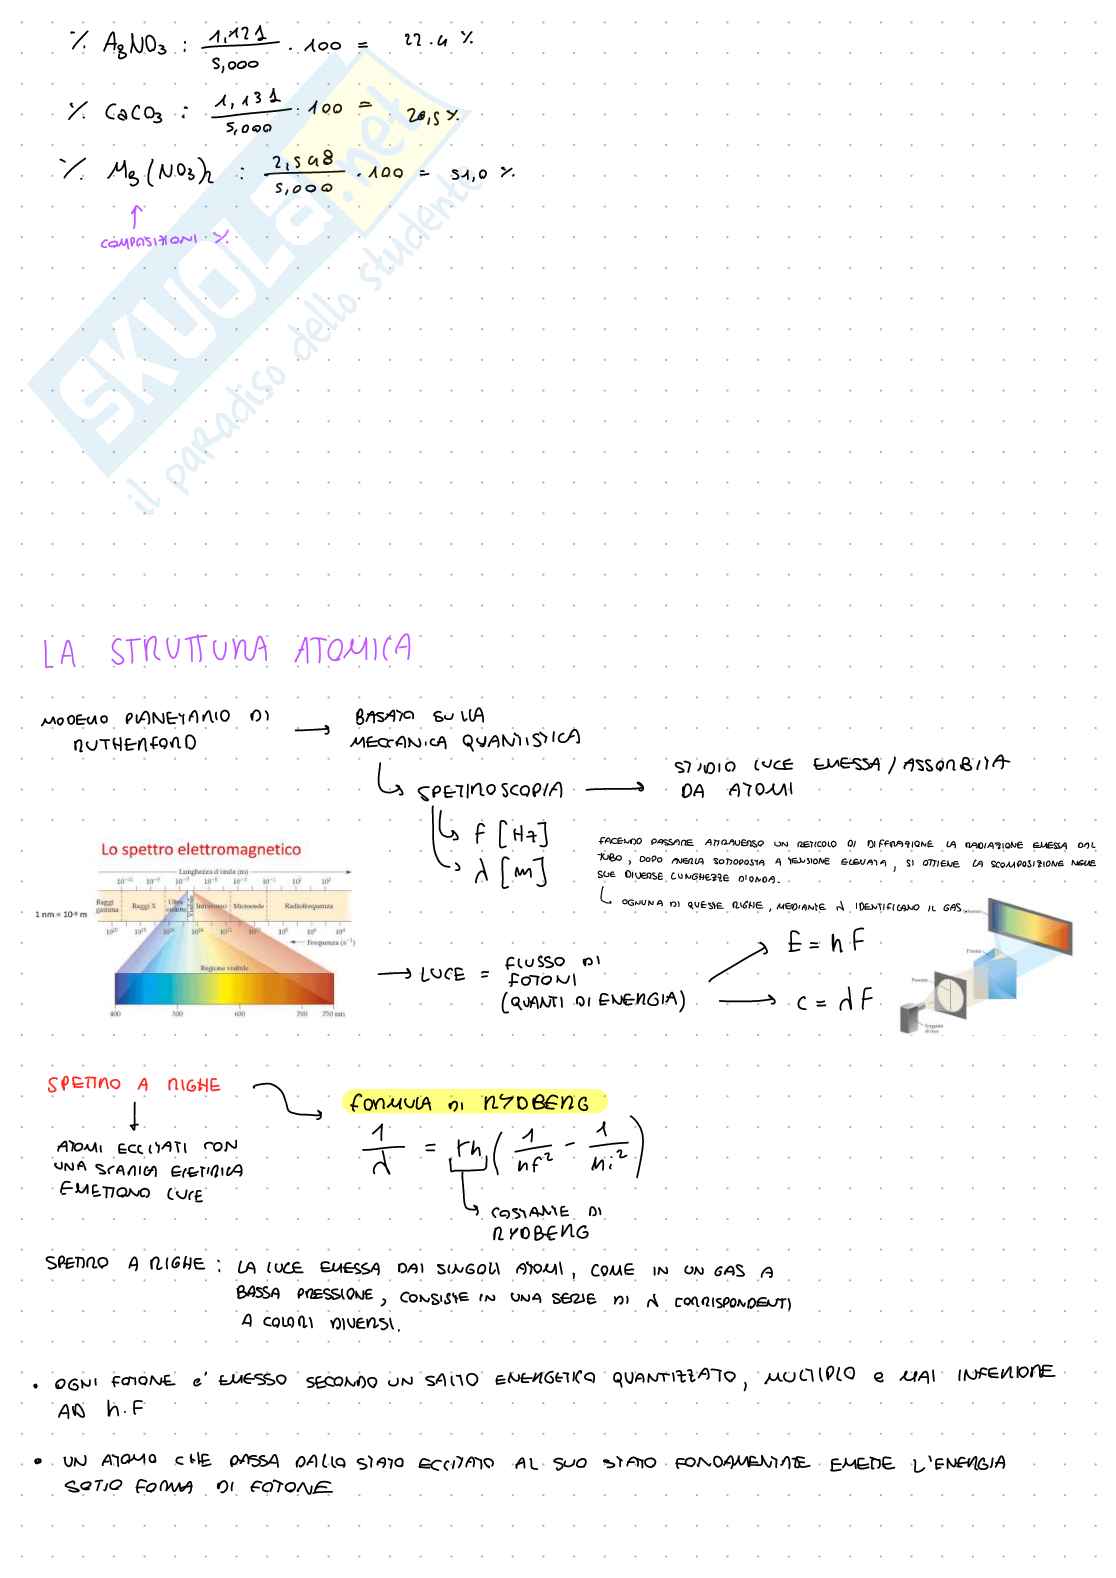 % AgNO3 : 1,121 / 5,000 · 100 = 22.4 %
% CaCO3 : 1,131 / 5,000 · 100 = 20,5 %
% Mg(NO3)2 : 2,548 / 5,000 · 100 = 51,0 %
COMPOSIZIONI %
SKUOLA.net
il paradiso dello studente
LA STRUTTURA ATOMICA
MODELLO PLANETARIO DI
RUTHERFORD
BASATO SULLA
MECCANICA QUANTISTICA
SPETTROSCOPIA
STUDIO LUCE EMESSA/ASSORBITA
DA ATOMI
f [Hz]
λ [m]
FACENDO PASSARE ATTRAVERSO UN RETICOLO DI DIFFRAZIONE LA RADIAZIONE EMESSA DAL
TUBO, DOPO AVERLA SOTTOPOSTA A TENSIONE ELEVATA, SI OTTIENE LA SCOMPOSIZIONE NELLE
SUE DIVERSE LUNGHEZZE D'ONDA.
OGNUNA DI QUESTE RIGHE, MEDIANTE λ IDENTIFICANO IL GAS.
Lo spettro elettromagnetico
Lunghezza d'onda (m)
Raggi gamma Raggi X Ultravioletto Visibile Infrarosso Microonde Radiofrequenza
1 nm = 10⁻⁹ m
Frequenza (s⁻¹)
Regione visibile
400 500 600 700 750 nm
LUCE = FLUSSO DI
FOTONI
(QUANTI DI ENERGIA)
E = hF
c = λF
Prisma
Fenditura
SPETTRO A RIGHE
ATOMI ECCITATI CON
UNA SCARICA ELETTRICA
EMETTONO LUCE
FORMULA DI RYDBERG
1/λ = rh (1/nf² - 1/ni²)
COSTANTE DI
RYDBERG
SPETTRO A RIGHE : LA LUCE EMESSA DAI SINGOLI ATOMI, COME IN UN GAS A
BASSA PRESSIONE, CONSISTE IN UNA SERIE DI λ CORRISPONDENTI
A COLORI DIVERSI.
• OGNI FOTONE e' EMESSO SECONDO UN SALTO ENERGETICO QUANTIZZATO, MULTIPLO e MAI INFERIORE
AD h.F
• UN ATOMO CHE PASSA DALLO STATO ECCITATO AL SUO STATO FONDAMENTALE EMETTE L'ENERGIA
SOTTO FORMA DI FOTONE